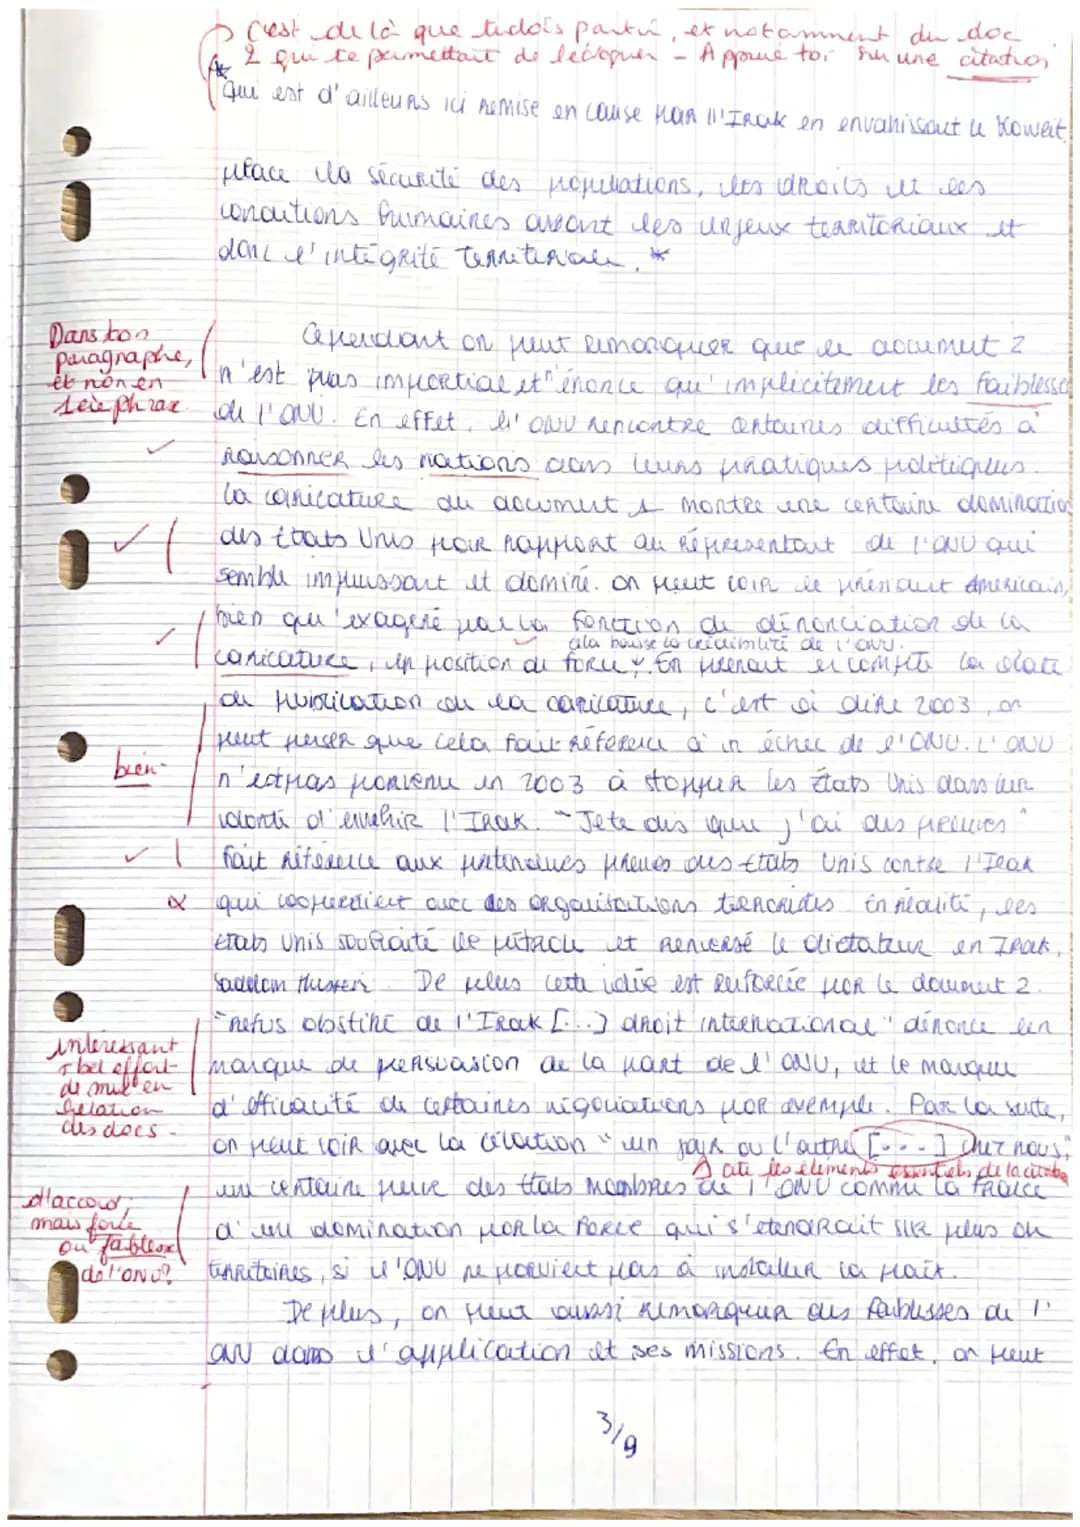 C'est de là que tu dois partir, et notamment du doc
2 qui te permettait de l'évoquer - Appuie toi sur une citation
* qui est d'ailleurs ici remise en cause par l'Irak en envahissant le Koweit.
place la sécurité des populations, les droits et les
conditions humaines avant les enjeux territoriaux et
donc l'intégrité territoriale. *
Dans ton
paragraphe,
et non en
1ère phrase
Cependant on peut remarquer que le document 2
n'est pas impartial et n'énonce qu'implicitement les faiblesses
de l'ONU. En effet, l'ONU rencontre certaines difficultés à
raisonner les nations dans leurs pratiques politiques.
la caricature du document 1 montre une certaine domination
des États Unis par rapport au représentant de l'ONU qui
semble impuissant et dominé. on peut voir le président Américain,
bien qu'exagéré par la fonction de dénonciation de la
cela baisse la crédibilité de l'ONU.
caricature, en position de force. En prenant en compte la date
de publication de la caricature, c'est à dire 2003, on
peut penser que cela fait référence à un échec de l'ONU. L'ONU
bien
n'est pas parvenu en 2003 à stopper les États Unis dans leur
volonté d'envahir l'Irak. "Je te dis que j'ai des preuves"
fait référence aux prétendues preuves des États Unis contre l'Irak
qui coopéraient avec des organisations terroristes En réalité, les
états Unis souhaité le pétrole et renversé le dictateur en Irak,
Saddam Hussein. De plus cette idée est renforcée par le document 2.
"refus obstiné de l'Irak [...] droit international" dénonce un
interessant
+ bel effort
de mise en
relation
des docs -
manque de persuasion de la part de l'ONU, et le manque
d'efficacité de certaines négociations par exemple. Par la suite,
on peut voir avec la citation "un jour ou l'autre [...] chez nous"
cite les éléments essentiels de la citation
une certaine peur des États membres de l'ONU comme la France
d'accord,
mais force
ou faiblesse
de l'ONU?
d'une domination par la force qui s'étendrait sur plus de
territoires, si l'ONU ne parvient pas à installer la paix.
De plus, on peut aussi remarquer des faiblesses de l'
ONU dans l'application et ses missions. En effet, on peut
3/9